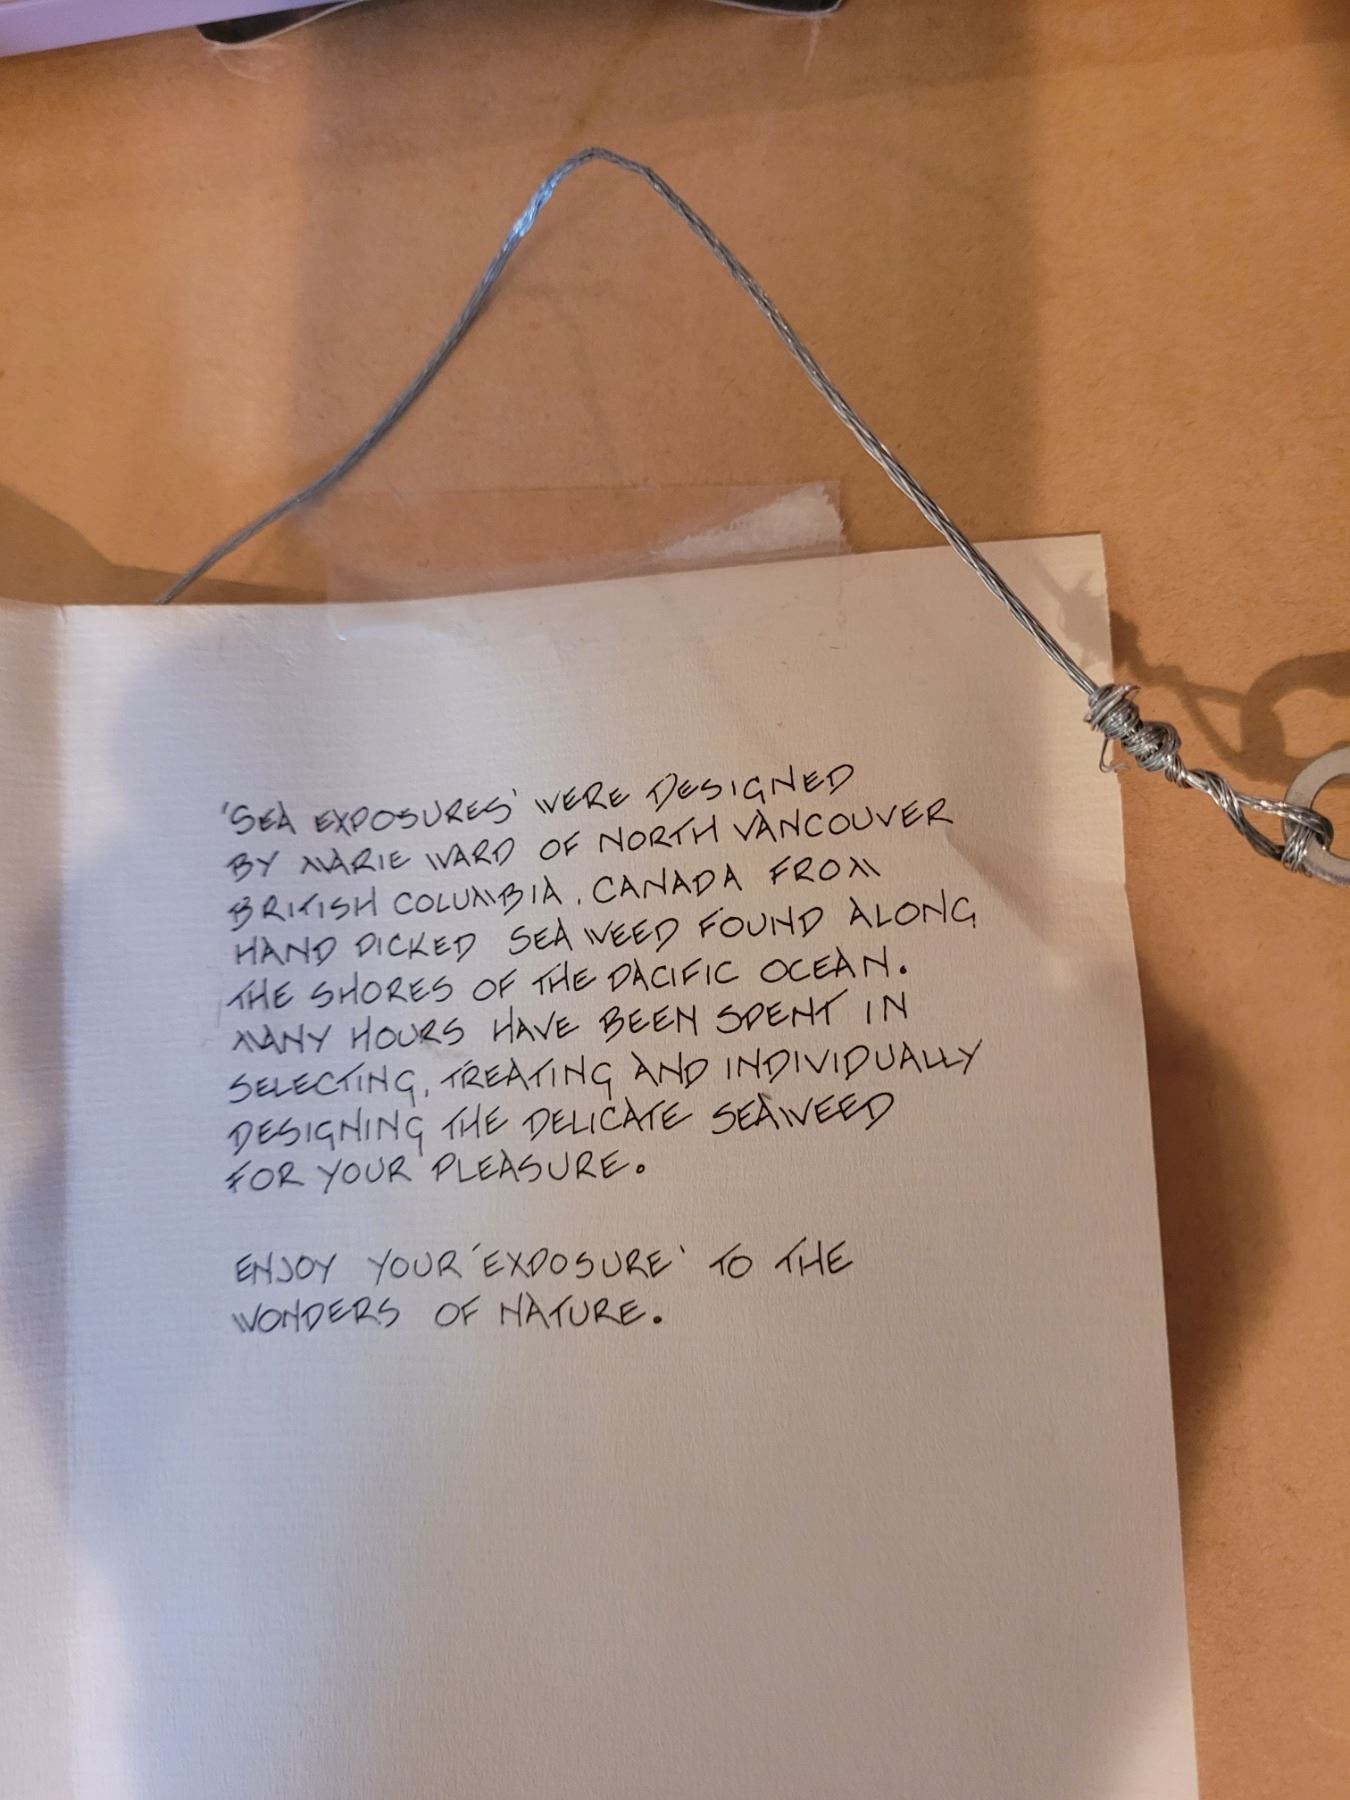 'SEA EXPOSURES' WERE DESIGNED
BY MARIE WARD OF NORTH VANCOUVER
BRITISH COLUMBIA, CANADA FROM
HAND PICKED SEAWEED FOUND ALONG
THE SHORES OF THE PACIFIC OCEAN.
MANY HOURS HAVE BEEN SPENT IN
SELECTING, TREATING AND INDIVIDUALLY
DESIGNING THE DELICATE SEAWEED
FOR YOUR PLEASURE.
ENJOY YOUR 'EXPOSURE' TO THE
WONDERS OF NATURE.